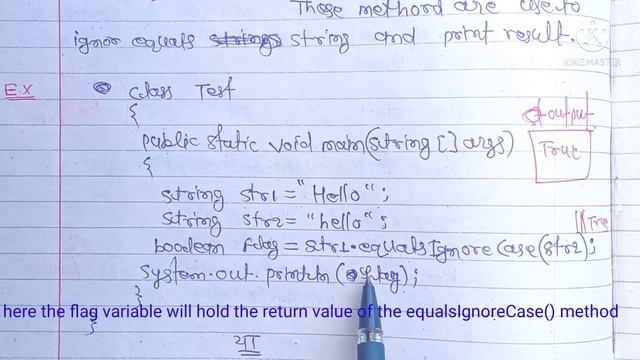 These method are use to
ignor equals string and print result.
KINEMASTER
E.X
class Test
{
output
public static void main(string [] args)
True
{
string str1 = "Hello";
string str2 = "hello";
// True
boolean flag = str1.equalsIgnore Case(str2);
System.out.println(flag);
}
here the flag variable will hold the return value of the equalsIgnoreCase() method
}
या